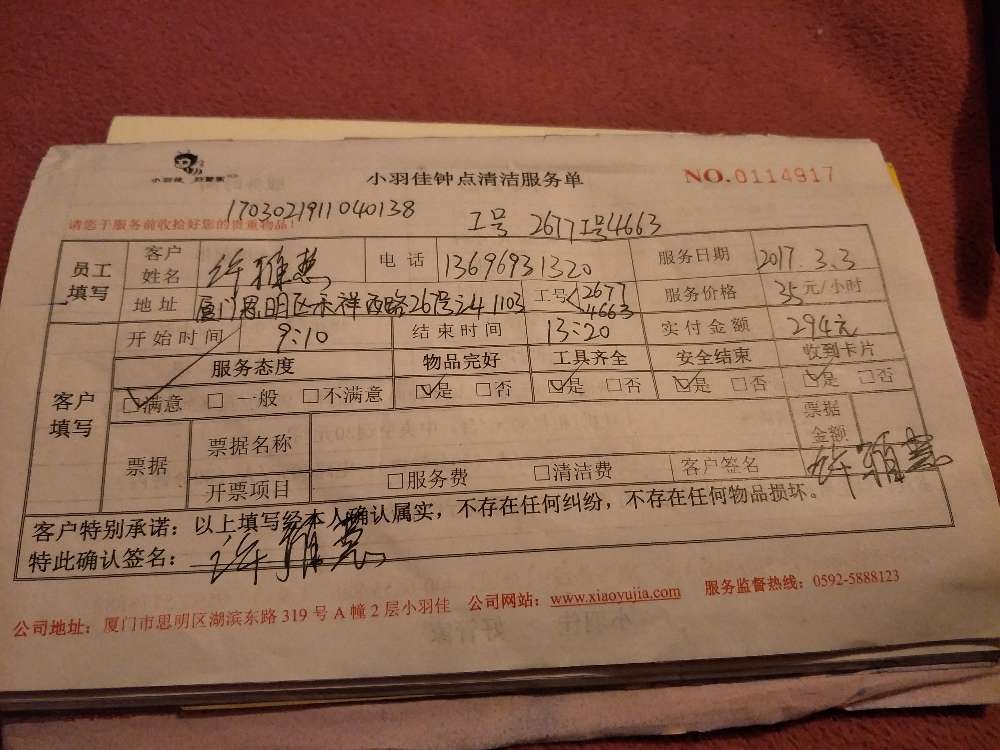 小羽佳 好管家
小羽佳钟点清洁服务单
NO.0114917
请您于服务前收拾好您的贵重物品!
1703021911040138
工号 2677 工号4663
员工填写 客户姓名 许雅慧 电话 13696931320 服务日期 2017.3.3
地址 厦门思明区禾祥西路26号之4 1103 工号 2677 4663 服务价格 35元/小时
客户填写 开始时间 9:10 结束时间 13:20 实付金额 294元
服务态度 物品完好 工具齐全 安全结束 收到卡片
☑满意 □一般 □不满意 ☑是 □否 ☑是 □否 ☑是 □否 ☑是 □否
票据 票据名称 票据金额
开票项目 □服务费 □清洁费 客户签名 许雅慧
客户特别承诺：以上填写经本人确认属实，不存在任何纠纷，不存在任何物品损坏。
特此确认签名： 许雅慧
公司地址：厦门市思明区湖滨东路319号A幢2层小羽佳 公司网站：www.xiaoyujia.com 服务监督热线：0592-5888123